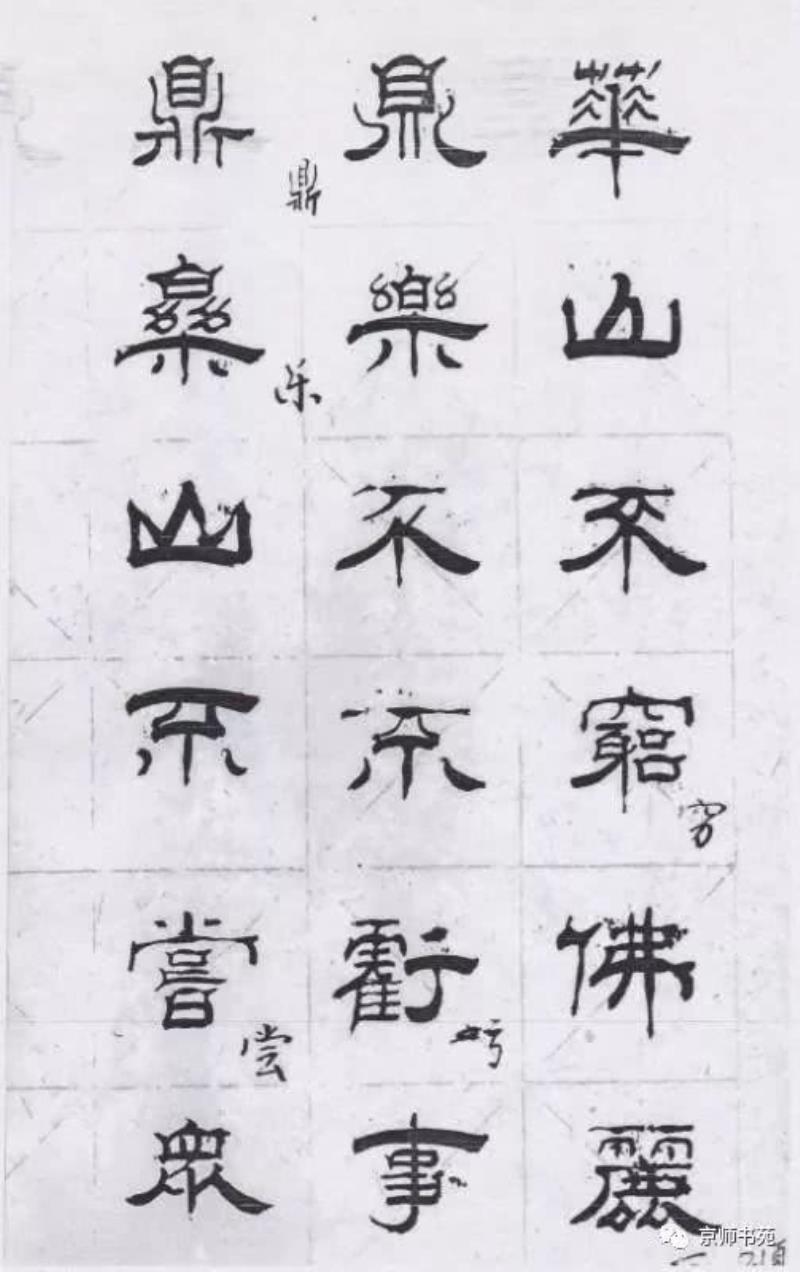 華山不窮佛麗
穷
鼎樂不不虧事
鼎
乐
亏
鼎樂山不嘗衆
尝
京师书苑